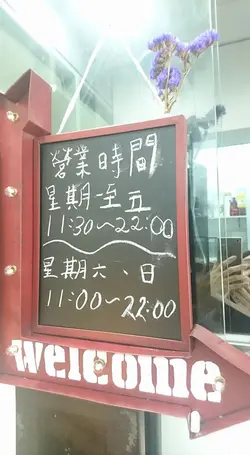 營業時間
星期一至五
11:30~22:00
星期六、日
11:00~22:00
welcome